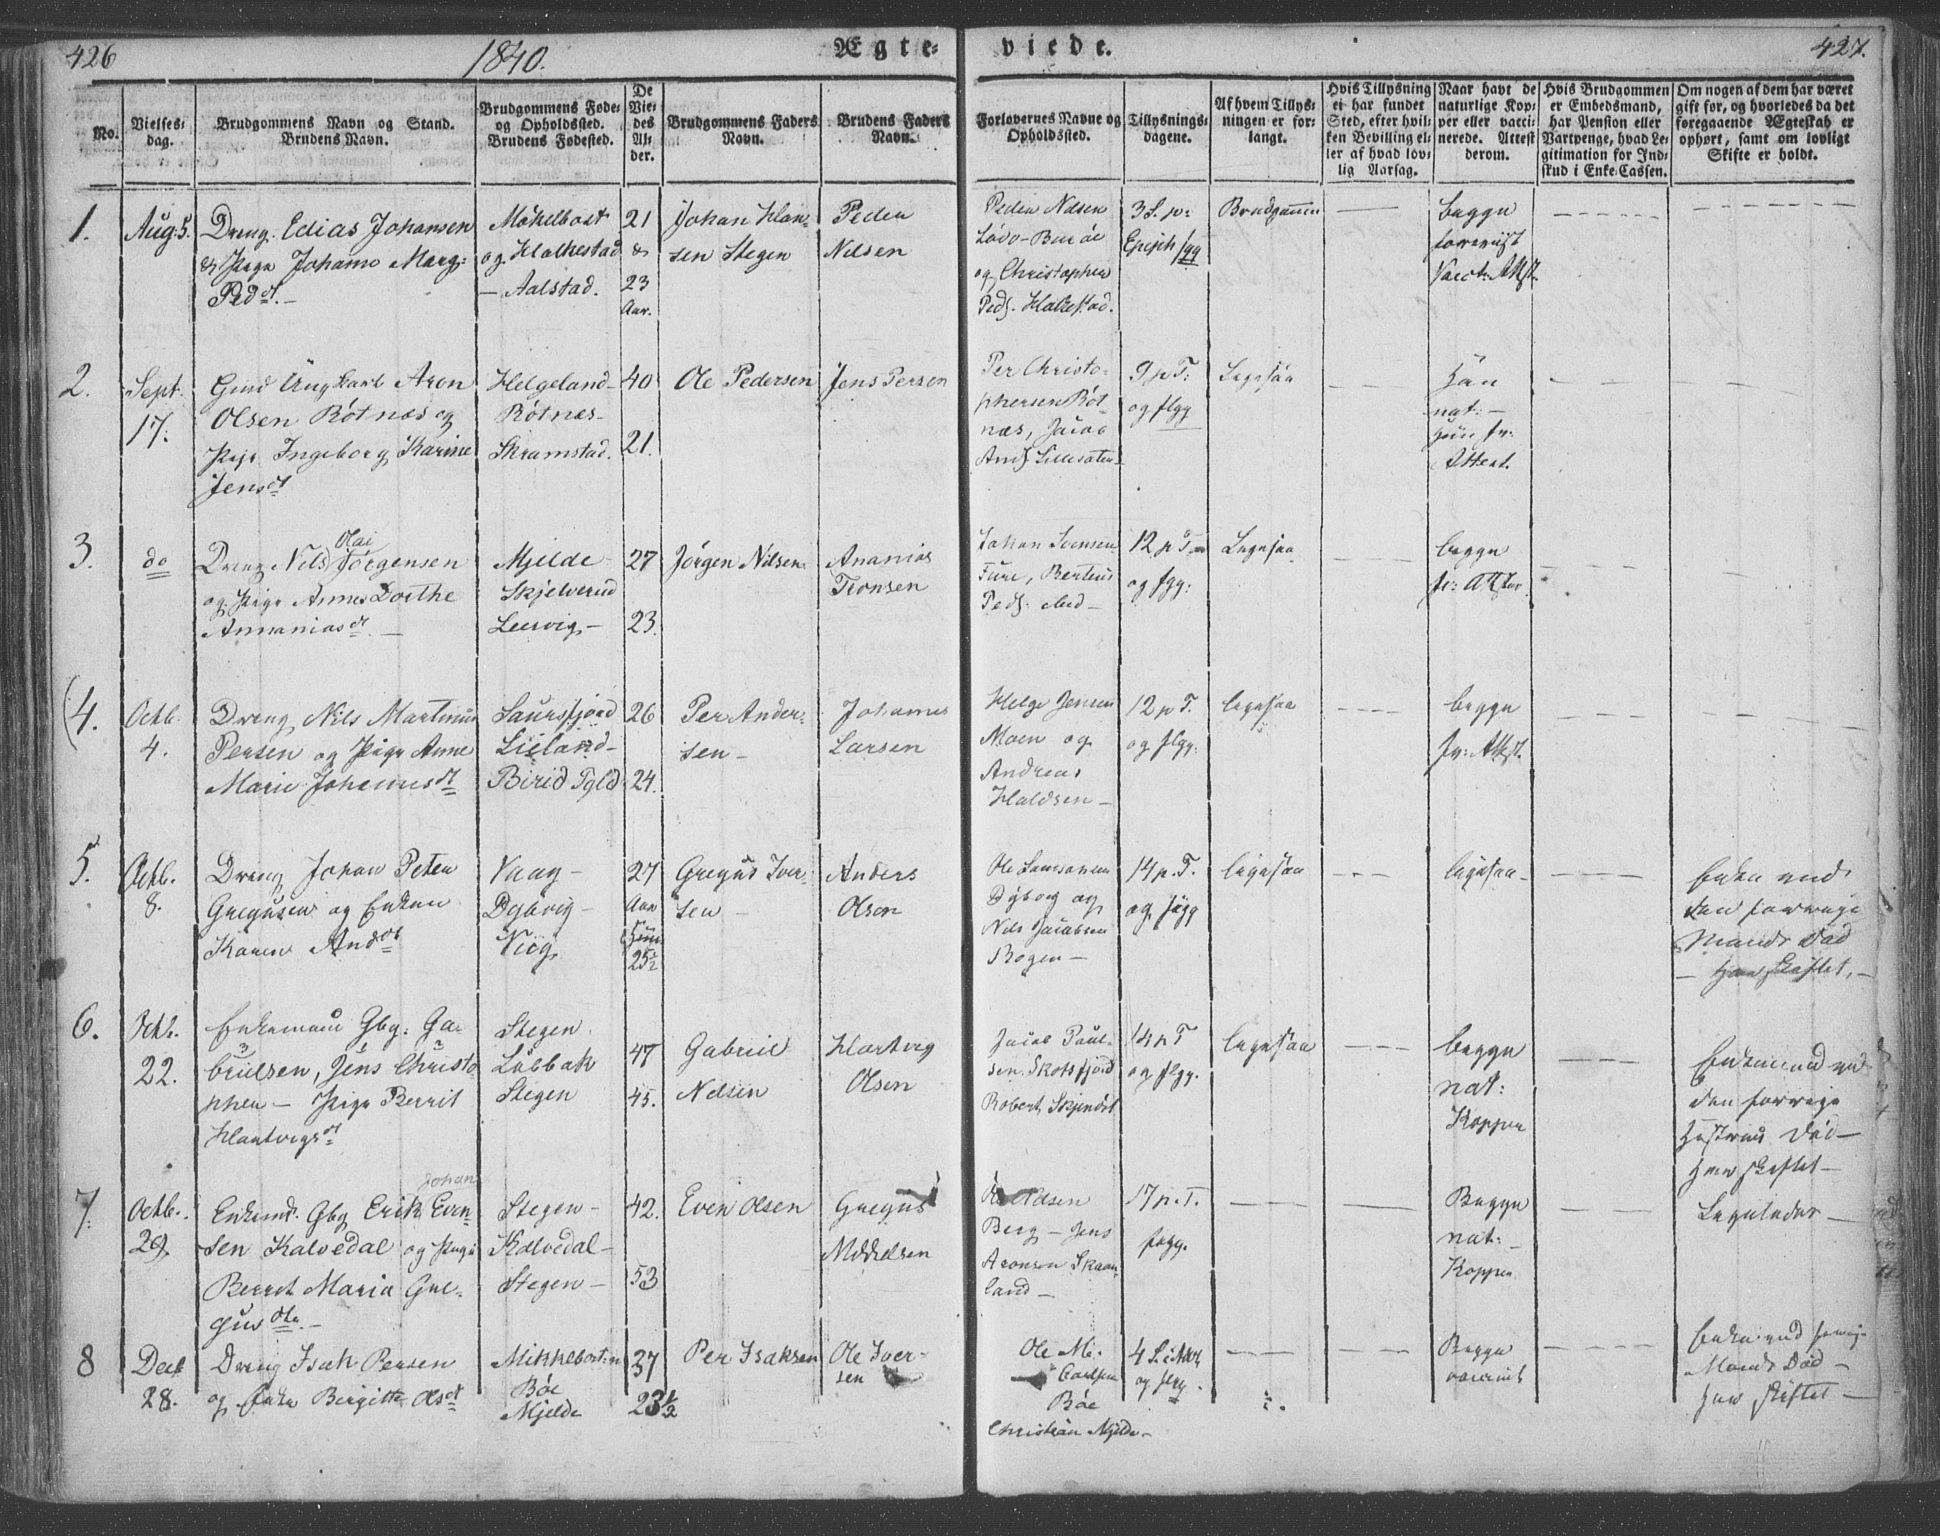 426
1840.
Ægte-
viede.
427.
No.
Vielses-
dag.
Brudgommens Navn og Stand.
Brudens Navn.
Brudgommens Føde-
og Opholdssted.
Brudens Fødested.
De
Vie-
des
Al-
der.
Brudgommens Faders
Navn.
Brudens Faders
Navn.
Forlovernes Navne og
Opholdssted.
Tillysnings-
dagene.
Af hvem Tillys-
ningen er for-
langt.
Hvis Tillysning
ei har fundet
Sted, efter hvil-
ken Bevilling el-
ler af hvad lov-
lig Aarsag.
Naar havt de
naturlige Kop-
per eller vacci-
nerede. Attest
derom.
Hvis Brudgommen
er Embedsmand,
har Pension eller
Vartpenge, hvad Le-
gitimation for Ind-
skud i Enke-Cassen.
Om nogen af dem har været
gift før, og hvorledes da det
foregaaende Ægteskab er
ophørt, samt om lovligt
Skifte er holdt.
1.
Aug: 5.
Dreng. Edias Johansen
& Pige Johane Marg:
Peddt. -
Mökelbost
og Klakkestad
- Aalstad.
21
&
23
Aar.
Johan Han-
sen Stegen
Peder
Nilsen
Peder Nilsen
og Christopher
Peds. Hakestad.
3 S. p:
Epiph
Brudgommen
begge
Vacc: Attst.
2.
Sept.
17.
Ungkarl Aron
Olsen Rötnæs og
Pige Ingeborg Karine
Jensdt
Helgeland-
Rötnæs-
Skramstad.
40
21.
Ole Pedersen
Jens Persen
Per Christo-
phersen Röt-
næs, Jacob
9 p T:
og flgg
Ligesaa
Han
nat: -
Hun
Attest.
3.
do
Dreng Nils Olai Jörgensen
og Pige Anne Dorthe
Annaniasdt. -
Mjelde
Skjelverud
Leervig -
27
23.
Jörgen Nilsen
Ananias
Tronsen
Johan Svensen
Fure, Berteus
12 p T.
og flgg:
Ligesaa
begge
4.
Octb.
4.
Dreng Nils Martinus
Persen og Pige Anne
Marie Johannesdt
Saursfjord
Lieland-
Birid Pgld
26
24.
Per Ander-
sen -
Johannes
Larsen
Helge Jensen
Moen og
Andreas
Haldsen -
12 p T.
og flgg.
ligesaa
begge
5.
Octb.
8.
Dreng Johan Peter
Gregusen og Enken
Karen Andsdt
Vaag -
Dybvig -
Viig
27
Aar
Hun
25½
Gregus Iver-
sen -
Anders
Olsen
Dyborg og
Nils Jacobsen
Bogen -
14 p. T.
og flgg
ligesaa
ligesaa -
Enke ved
den forrige
Mands Død
- har skiftet. -
6.
Octb.
22.
Enkemand Gbg. Ga-
brielsen, Jens Christo-
pher - Pige Berrit
Hartvigsdt
Stegen
Löbbak
Stegen
47
45.
Gabriel
Nilsen
Hartvig
Olsen
Jacob Paul-
sen Skotsfjord
Robert Skjendst
14 p T
og flgg.
ligesaa
begge
nat:
Kopper
Enkemand ved
den forrige
Hustrues Død -
har skiftet -
7.
Octb.
29.
Enkemd. Gbg Erik Johan Even-
sen Kalvedal og Pige
Berret Maria Gre-
gusdtr. -
Stegen -
Kalvedal -
Stegen -
42.
53
Even Olsen
Gregus
Mikkelsen
Ole Nilsen
Berg - Jens
Aronsen Skaan-
land -
17 p. T.
Begge
nat: -
Kopper
Ligeledes -
8
Decb
28.
Dreng Isak Persen
og Enke Bergitte Olsdt
Mikkelbosten
Böe
Mjelde
37
23½
Per Isaksen
Ole Iver-
sen
Ole Mi-
Carlsen
Böe
Christian Mjelde -
4 S. i Adv.
og flgg.
Begge
vaccineret
Enke ved forrige
Mands Død -
har skiftet -